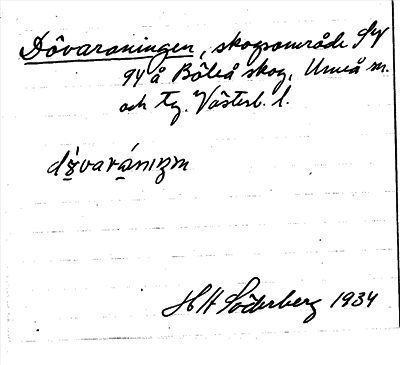 Dôvaraningen, skogsområde
94 å Böleå skog, Umeå sn.
och tg. Västerb. l.
dø̀varánıŋm
H H Söderberg 1934